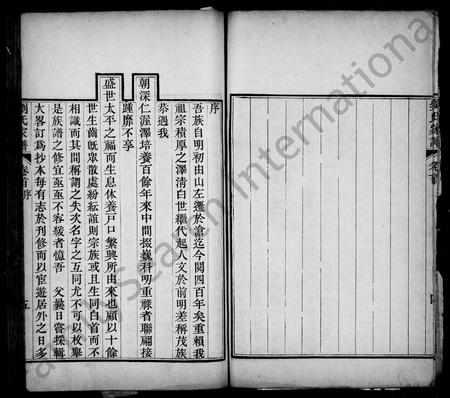 序
吾族自明初由山左遷於滄迄今閱四百年矣重賴我
祖宗積厚之澤清白世繼代起人文於前明差稱茂族
恭遇我
朝深仁渥澤培養百餘年來中間掇巍科明重祿者聯翩接
踵靡不享
盛世太平之福而生息休養戶口繁興所由來也顧以十餘
世生齒旣眾散處紛紜誼則宗族或且生同白首而不
相識而其間稱謂之失次名字之互同尤不可以枚舉
是族譜之修宜亟亟不容緩者憶吾 父曩日嘗採輯
大畧訂爲抄本每有志於刋修而以宦遊居外之日多
劉氏家譜 卷首序 五
Search International